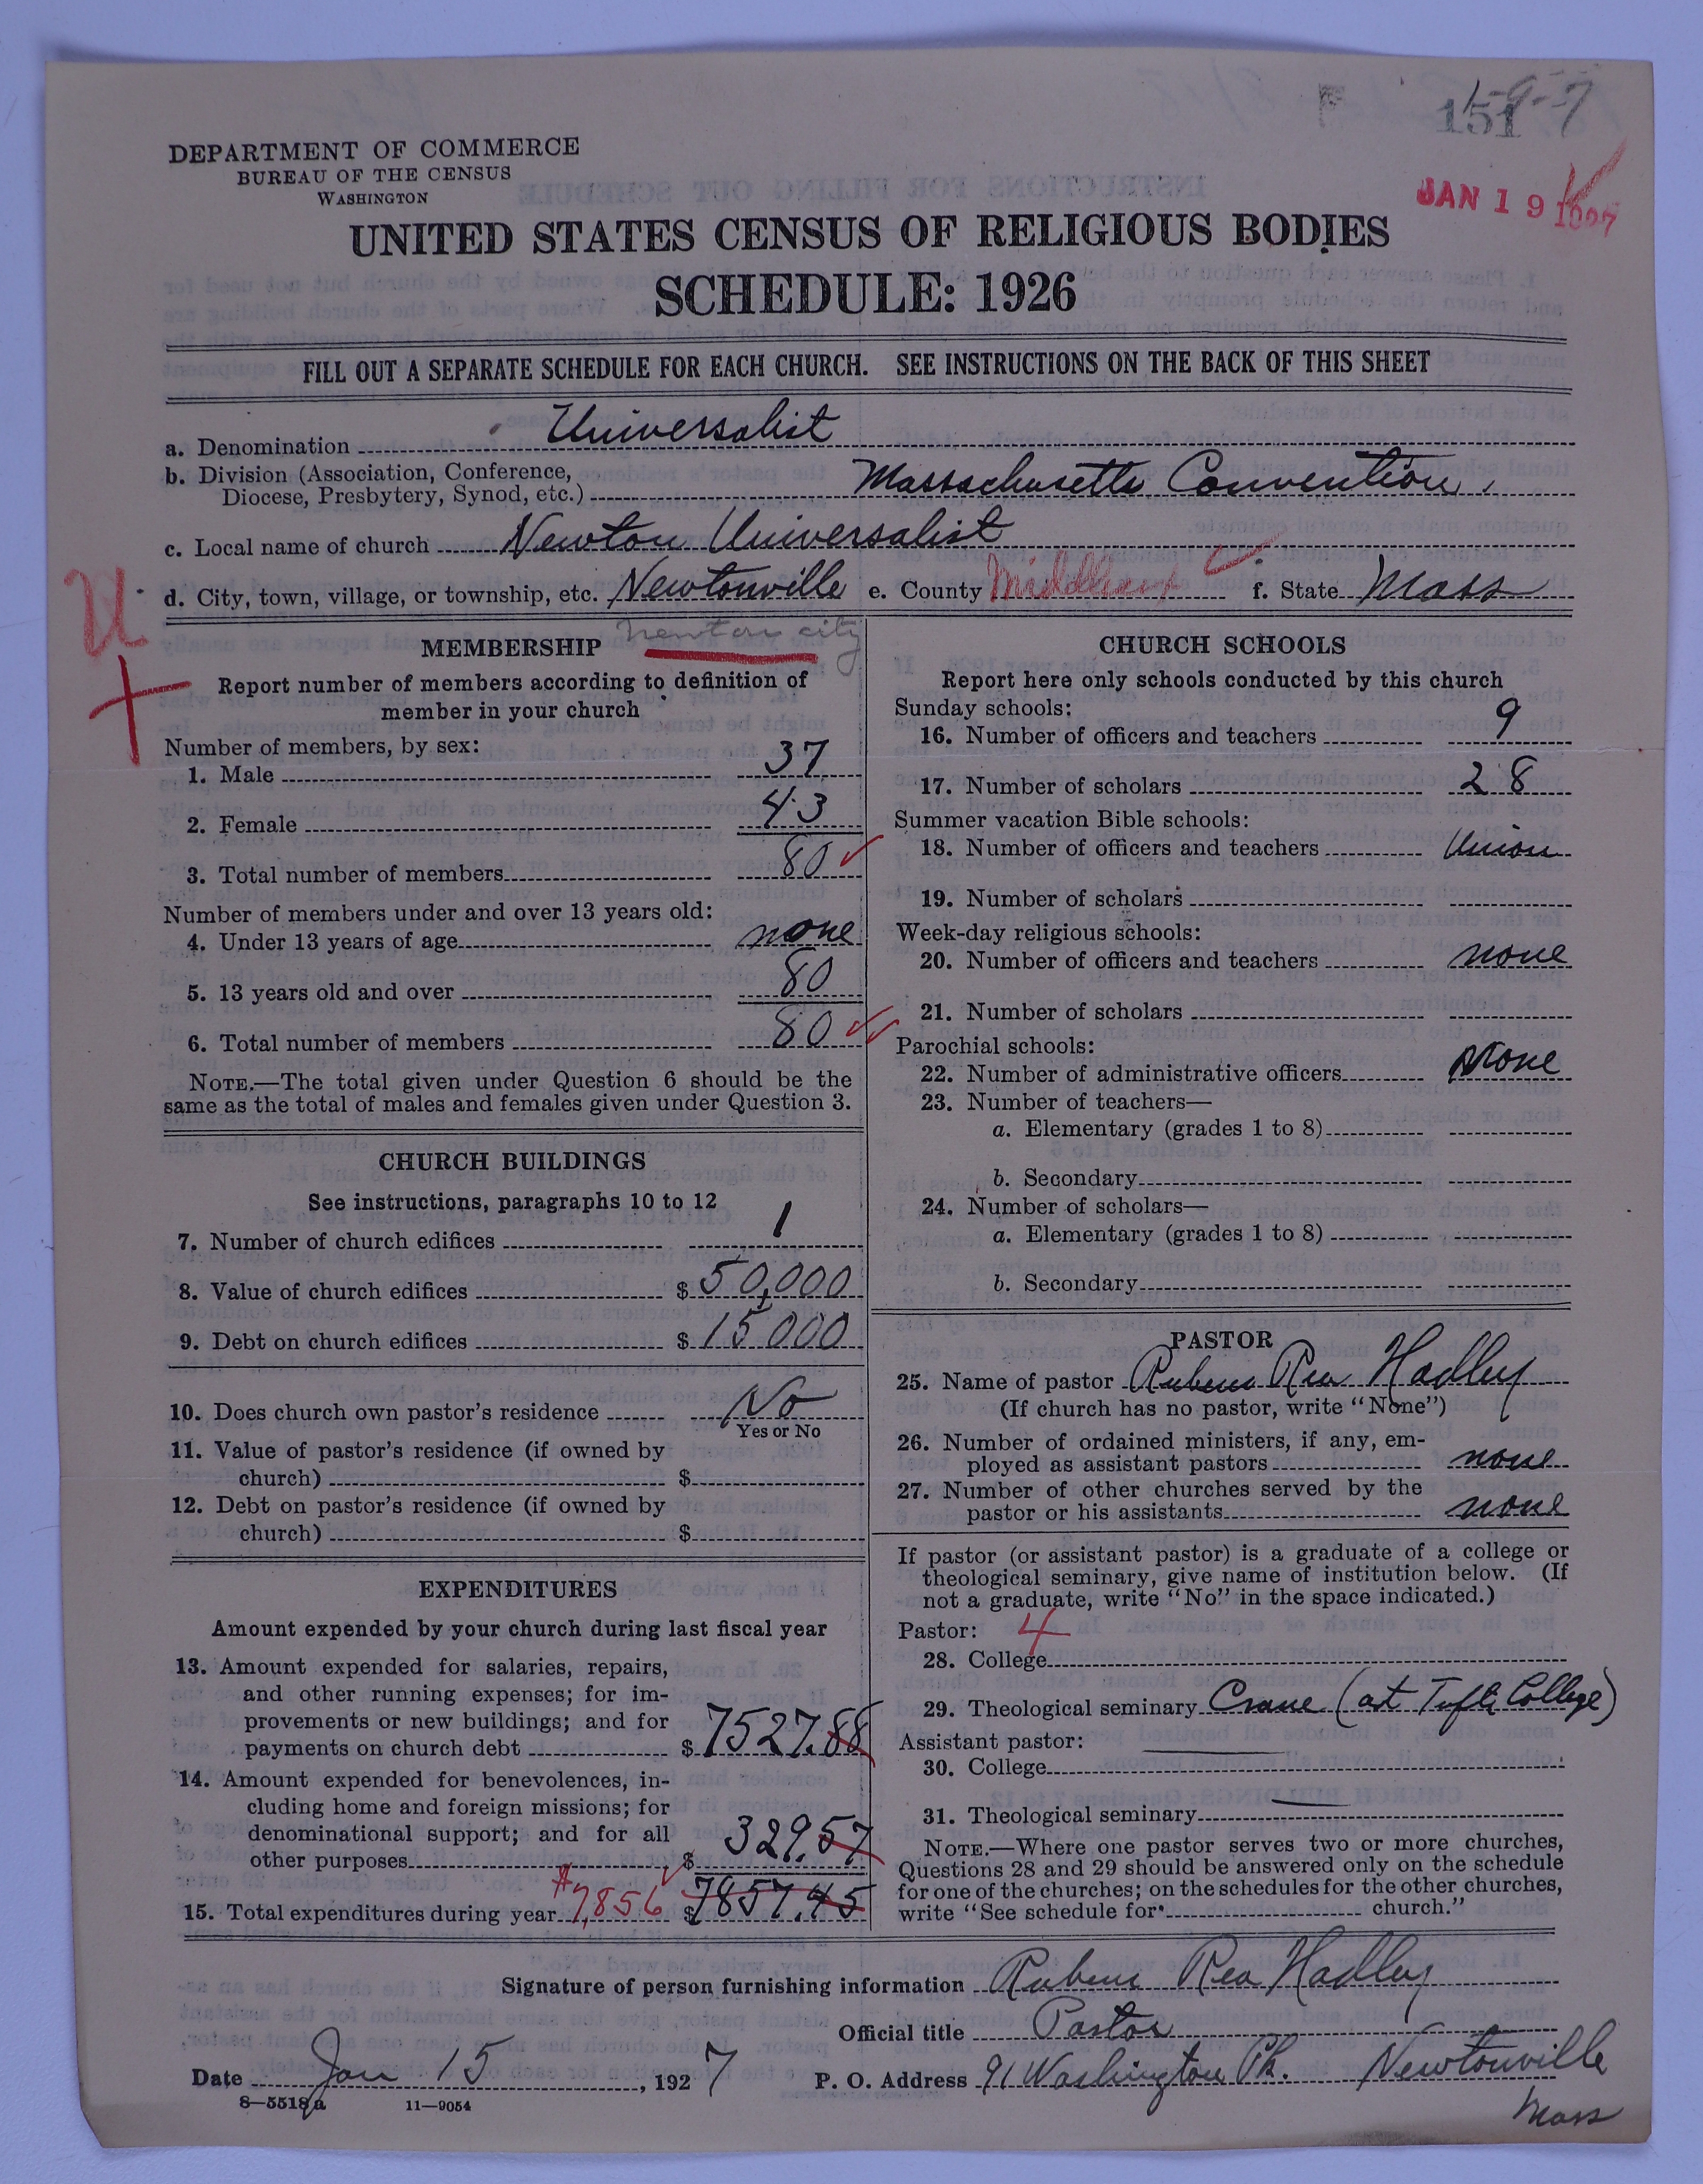 1-9-7
151
JAN 19 1927
DEPARTMENT OF COMMERCE
BUREAU OF THE CENSUS
WASHINGTON
UNITED STATES CENSUS OF RELIGIOUS BODIES
SCHEDULE: 1926
FILL OUT A SEPARATE SCHEDULE FOR EACH CHURCH. SEE INSTRUCTIONS ON THE BACK OF THIS SHEET
a. Denomination Universalist
b. Division (Association, Conference,
Diocese, Presbytery, Synod, etc.) Massachusetts Convention,
c. Local name of church Newton Universalist
d. City, town, village, or township, etc. Newtonville e. County Middlesex f. State Mass
U
Newton city
MEMBERSHIP
Report number of members according to definition of
member in your church
Number of members, by sex:
1. Male 37
2. Female 43
3. Total number of members 80
Number of members under and over 13 years old:
4. Under 13 years of age none
5. 13 years old and over 80
6. Total number of members 80
NOTE.—The total given under Question 6 should be the
same as the total of males and females given under Question 3.
CHURCH BUILDINGS
See instructions, paragraphs 10 to 12
7. Number of church edifices 1
8. Value of church edifices $ 50,000
9. Debt on church edifices $ 15000
10. Does church own pastor's residence No
Yes or No
11. Value of pastor's residence (if owned by
church) $
12. Debt on pastor's residence (if owned by
church) $
EXPENDITURES
Amount expended by your church during last fiscal year
13. Amount expended for salaries, repairs,
and other running expenses; for im-
provements or new buildings; and for
payments on church debt $ 7527.88
14. Amount expended for benevolences, in-
cluding home and foreign missions; for
denominational support; and for all
other purposes $ 329.57
15. Total expenditures during year 7,856 $ 7857.45
CHURCH SCHOOLS
Report here only schools conducted by this church
Sunday schools:
16. Number of officers and teachers 9
17. Number of scholars 28
Summer vacation Bible schools:
18. Number of officers and teachers Union
19. Number of scholars
Week-day religious schools:
20. Number of officers and teachers none
21. Number of scholars
Parochial schools:
22. Number of administrative officers None
23. Number of teachers—
a. Elementary (grades 1 to 8)
b. Secondary
24. Number of scholars—
a. Elementary (grades 1 to 8)
b. Secondary
PASTOR
25. Name of pastor Rubens Rea Hadley
(If church has no pastor, write "None")
26. Number of ordained ministers, if any, em-
ployed as assistant pastors none
27. Number of other churches served by the
pastor or his assistants none
If pastor (or assistant pastor) is a graduate of a college or
theological seminary, give name of institution below. (If
not a graduate, write "No" in the space indicated.)
Pastor: 4
28. College
29. Theological seminary Crane (at Tufts College)
Assistant pastor:
30. College
31. Theological seminary
NOTE.—Where one pastor serves two or more churches,
Questions 28 and 29 should be answered only on the schedule
for one of the churches; on the schedules for the other churches,
write "See schedule for church."
Signature of person furnishing information Rubens Rea Hadley
Official title Pastor
Date Jan 15, 1927 P. O. Address 91 Washington Pk. Newtonville
Mass
8—5518a 11—9054